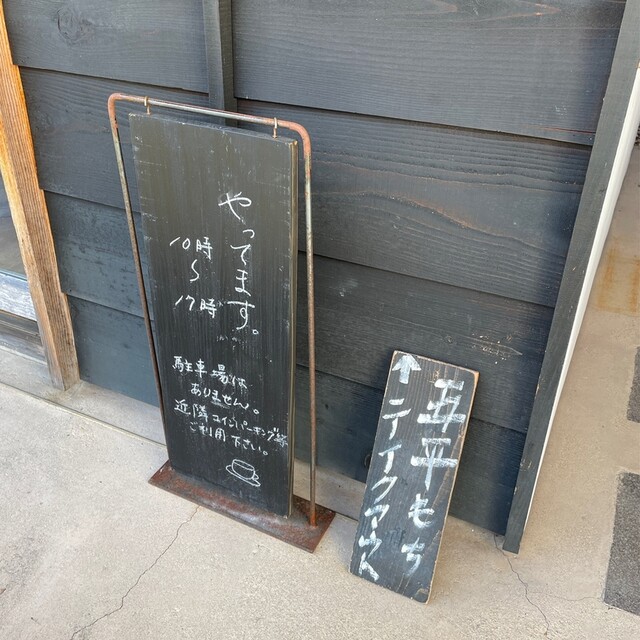 やってます。
10時
〜
17時
駐車場は
ありません。
近隣コインパーキング等
ご利用下さい。
五平もち
↑テイクアウト